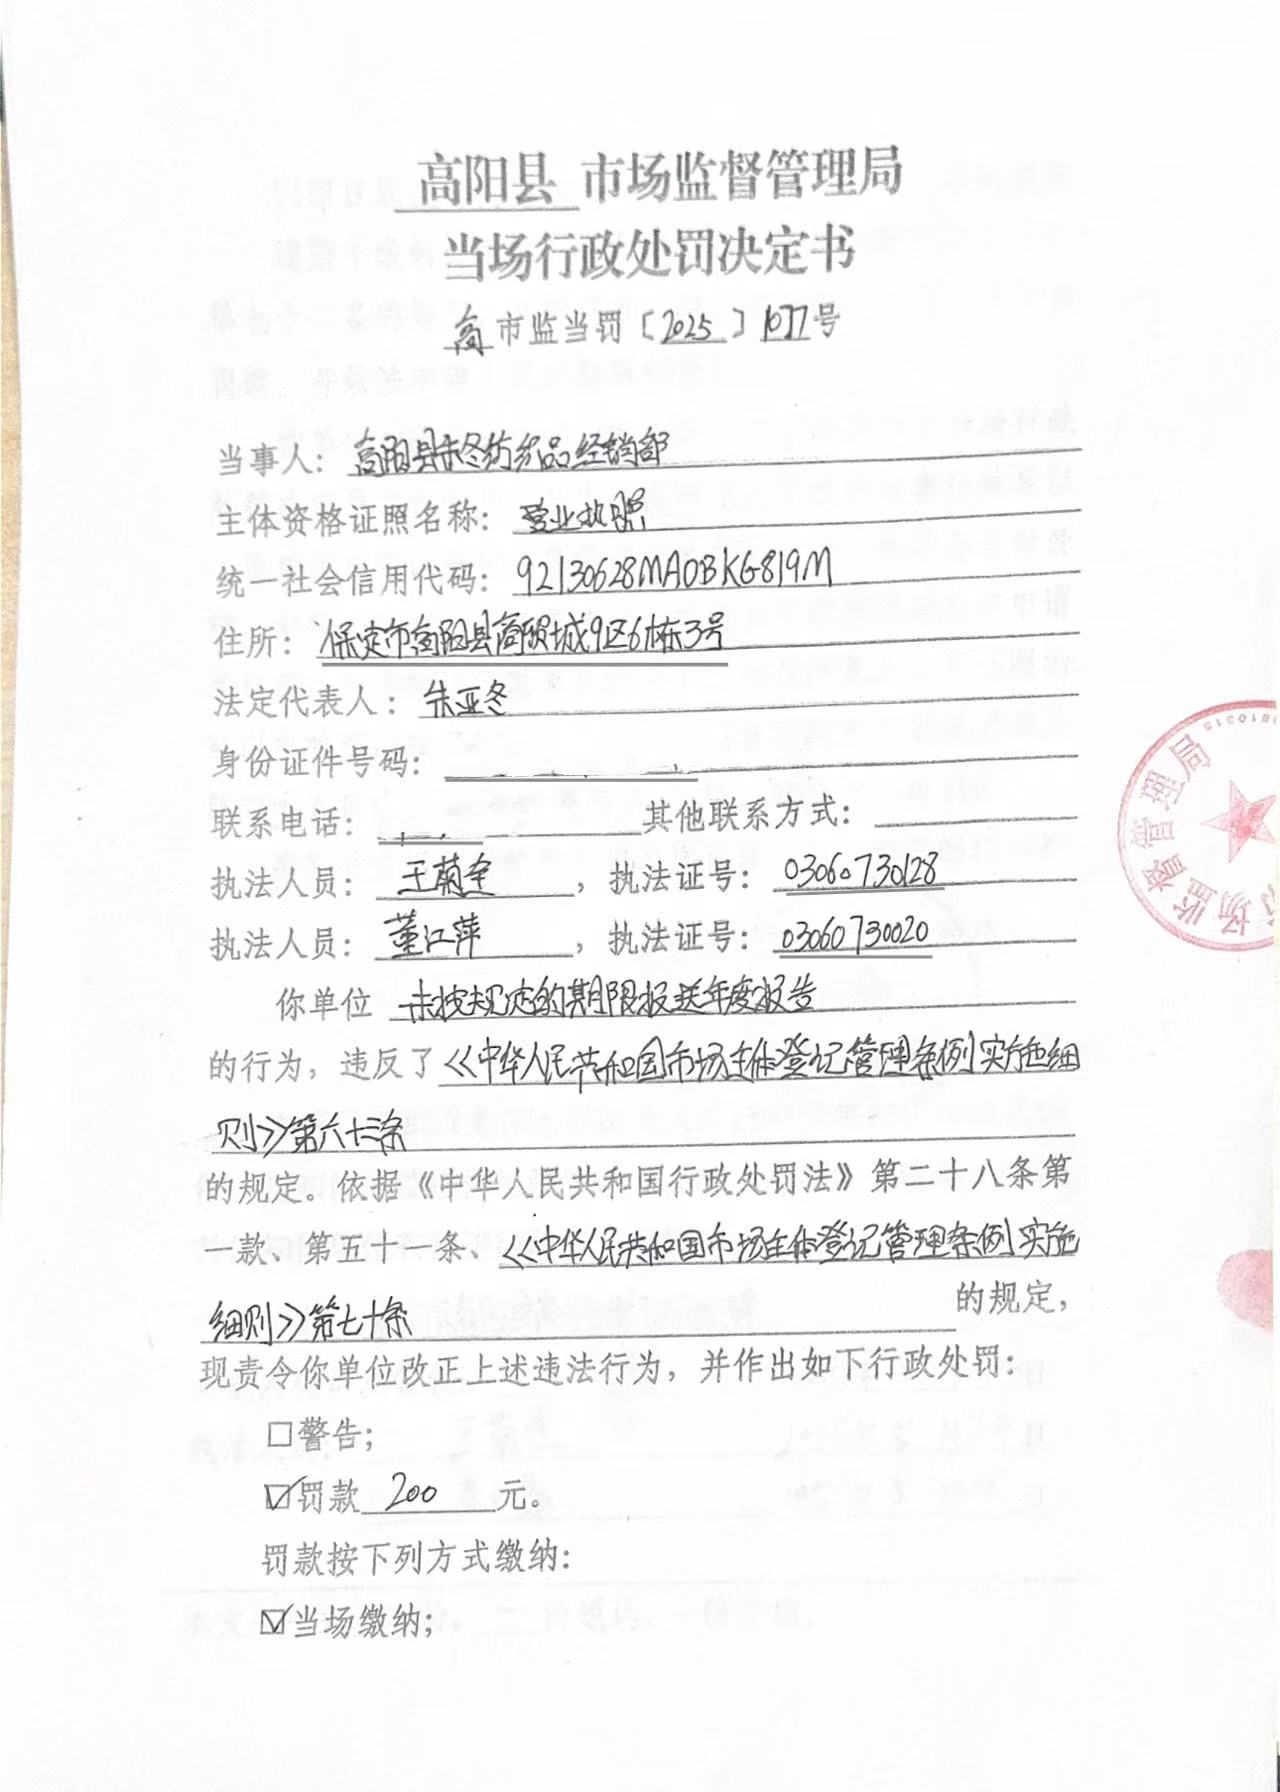 高阳县 市场监督管理局
当场行政处罚决定书
高 市监当罚〔2025〕1077号
当事人：高阳县朱冬纺织品经销部
主体资格证照名称：营业执照
统一社会信用代码：92130628MA0BKG819M
住所：保定市高阳县商贸城9区6栋3号
法定代表人：朱亚冬
身份证件号码：
联系电话： 其他联系方式：
执法人员：王菊 ，执法证号：03060730128
执法人员：董江萍 ，执法证号：03060730020
你单位 未按规定的期限报送年度报告
的行为，违反了《中华人民共和国市场主体登记管理条例实施细
则》第六十三条
的规定。依据《中华人民共和国行政处罚法》第二十八条第
一款、第五十一条、《中华人民共和国市场主体登记管理条例实施
细则》第七十条 的规定，
现责令你单位改正上述违法行为，并作出如下行政处罚：
□警告；
☑罚款 200 元。
罚款按下列方式缴纳：
☑当场缴纳；
市场监督管理局